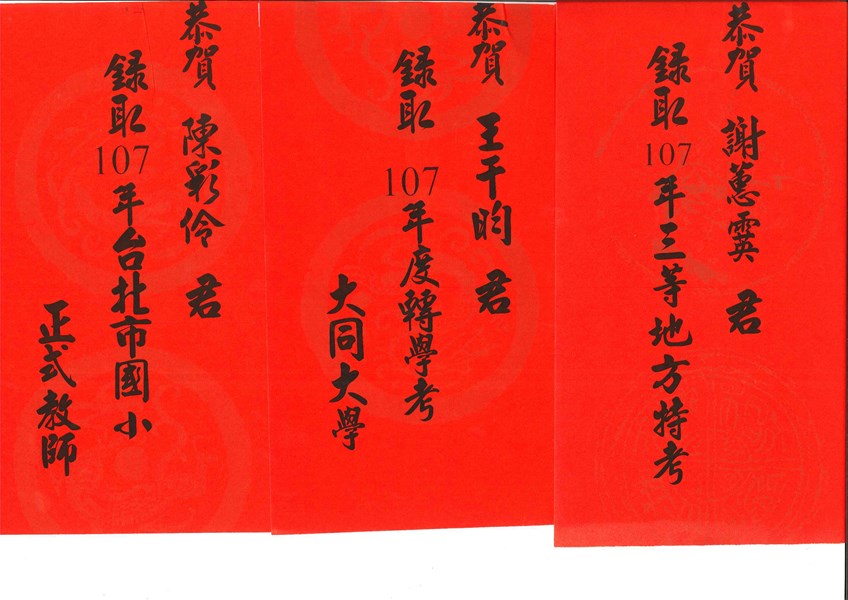 恭賀 謝蕙霙 君
錄取 107 年三等地方特考
恭賀 王干昀 君
錄取 107 年度轉學考
大同大學
恭賀 陳彩伶 君
錄取 107 年台北市國小
正式教師